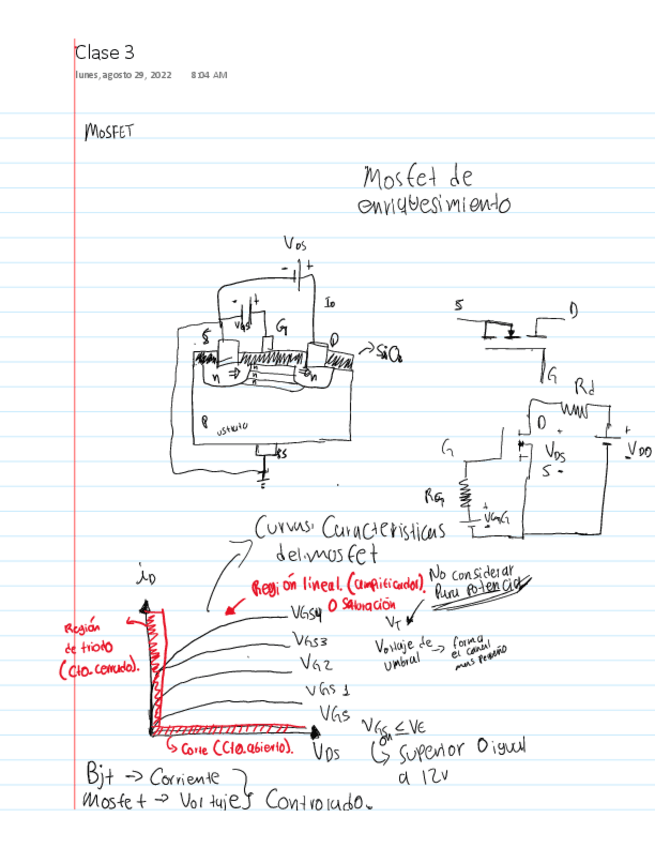 Clase 3
lunes, agosto 29, 2022 8:04 AM
MOSFET
Mosfet de
enriquesimiento
VDS
- +
ID
- +
VGS
S G D
SiO2
n n
n
n
P
BS
S D
G
Rd
D +
G VDS VDD
S -
RG
VGG
Curvas Caracteristicas
del mosfet
iD
Región lineal. (amplificador).
O Saturación
No considerar
Para potencia
VGS4
VGS3
VG2
VGS1
VGS
VT
Voltaje de
umbral
forma
el canal
mas pequeño
Región
de triodo
(Cto. cerrado).
Corte (Cto. abierto).
VDS
VGS ≤ VE
on
Superior O igual
a 12v
Bjt → Corriente
Mosfet → Voltaje } Controlado.